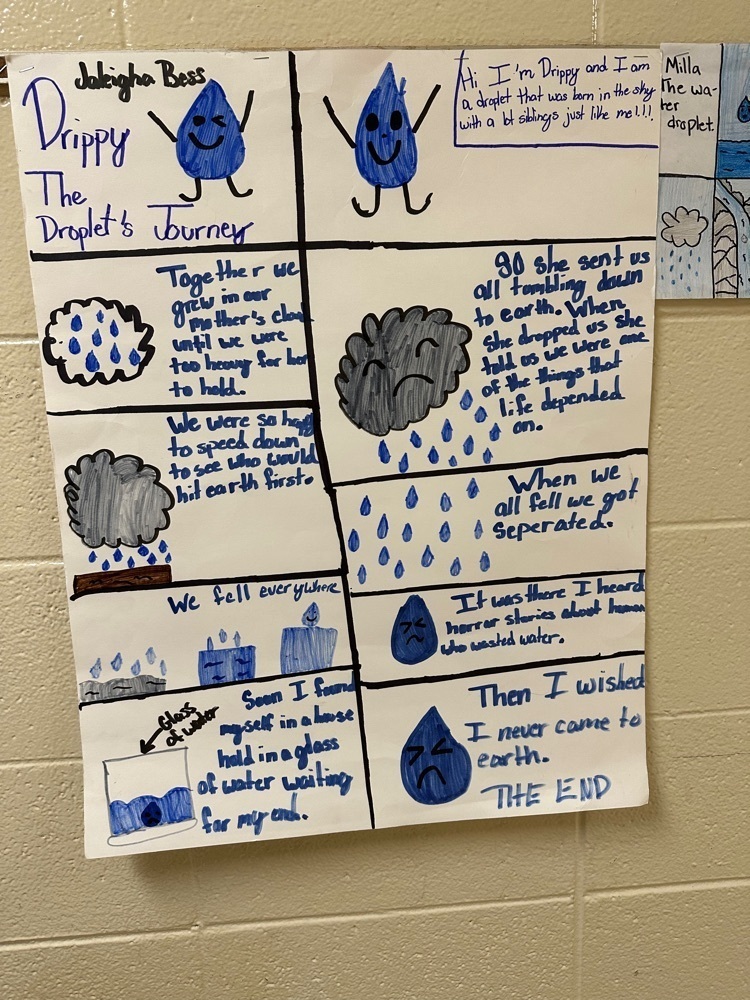 Jaleigha Bess
Drippy
The
Droplet's Journey
Hi I'm Drippy and I am
a droplet that was born in the sky
with a lot siblings just like me!!!!
Together we
grew in our
mother's cloud
until we were
too heavy for her
to hold.
SO she sent us
all tumbling down
to earth. When
she dropped us she
told us we were one
of the things that
life depended
on.
We were so happy
to speed down
to see who would
hit earth first.
When we
all fell we got
seperated.
We fell everywhere
It was there I heard
horror stories about human
who wasted water.
Glass
of water
Soon I found
myself in a house
hold in a glass
of water waiting
for my end.
Then I wished
I never came to
earth.
THE END
Milla
The wa-
ter
droplet.